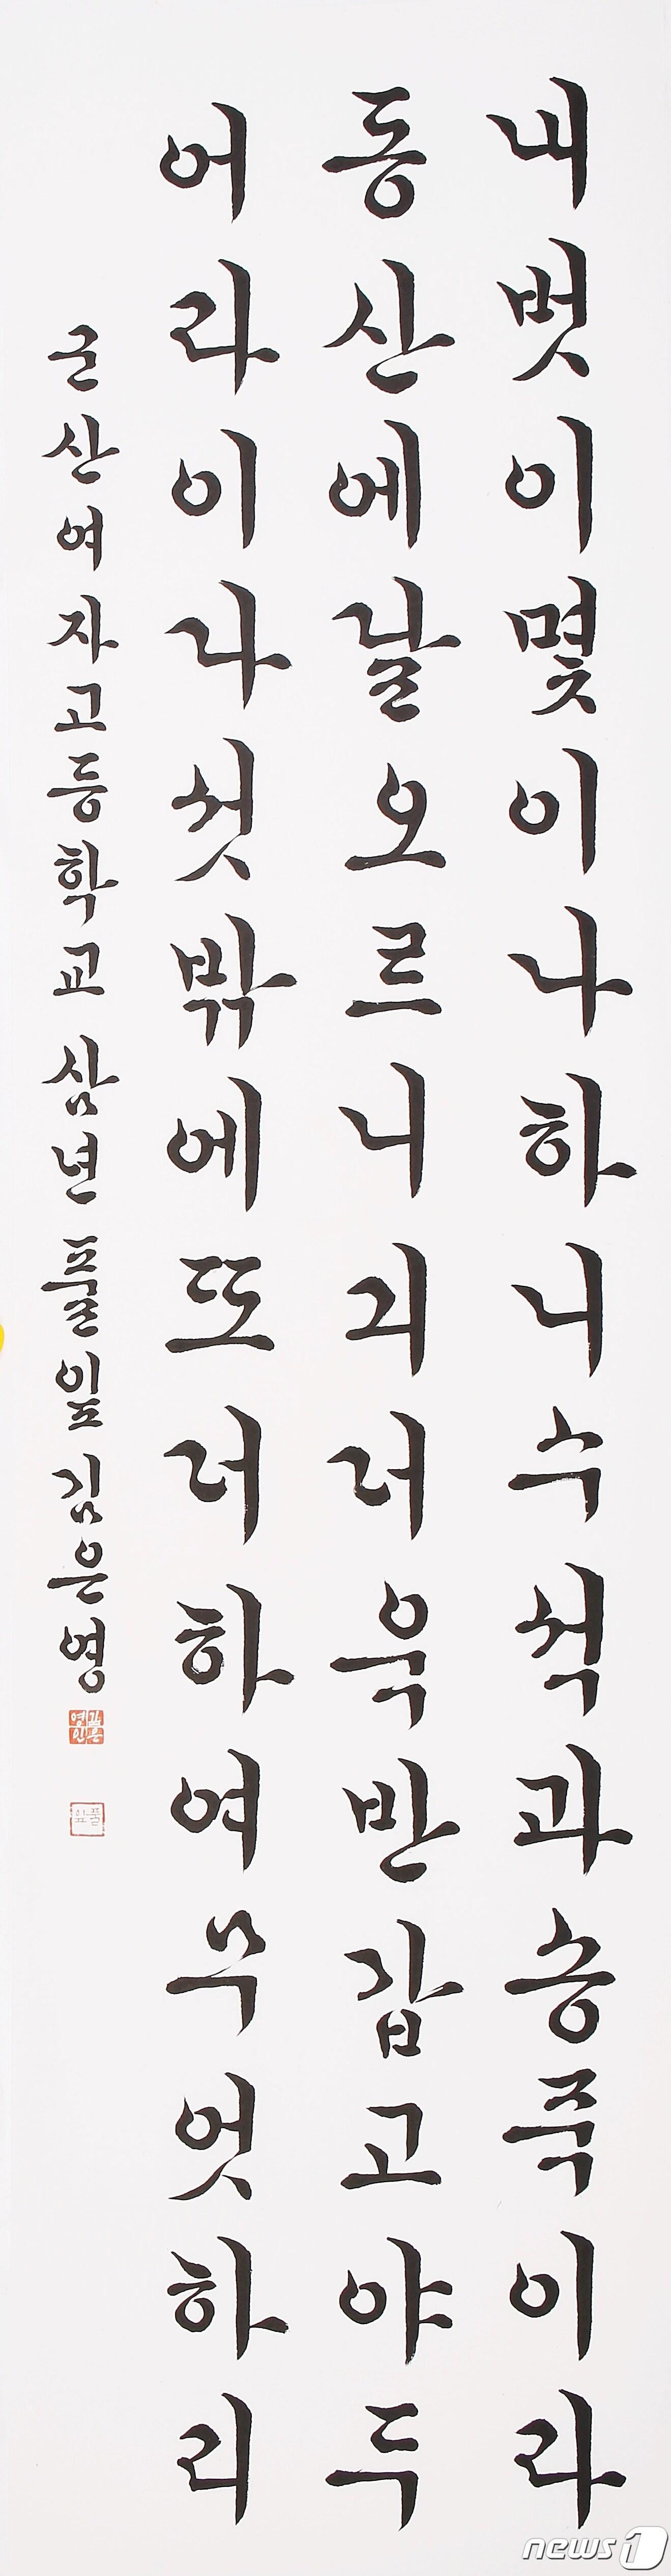 내벗이몇이나하니수석과송죽이라
동산에달오르니긔더욱반갑고야두
어라이다섯밖에또더하여무엇하리
군산여자고등학교 삼년 풀잎 김은영
김은영인
풀잎
news1